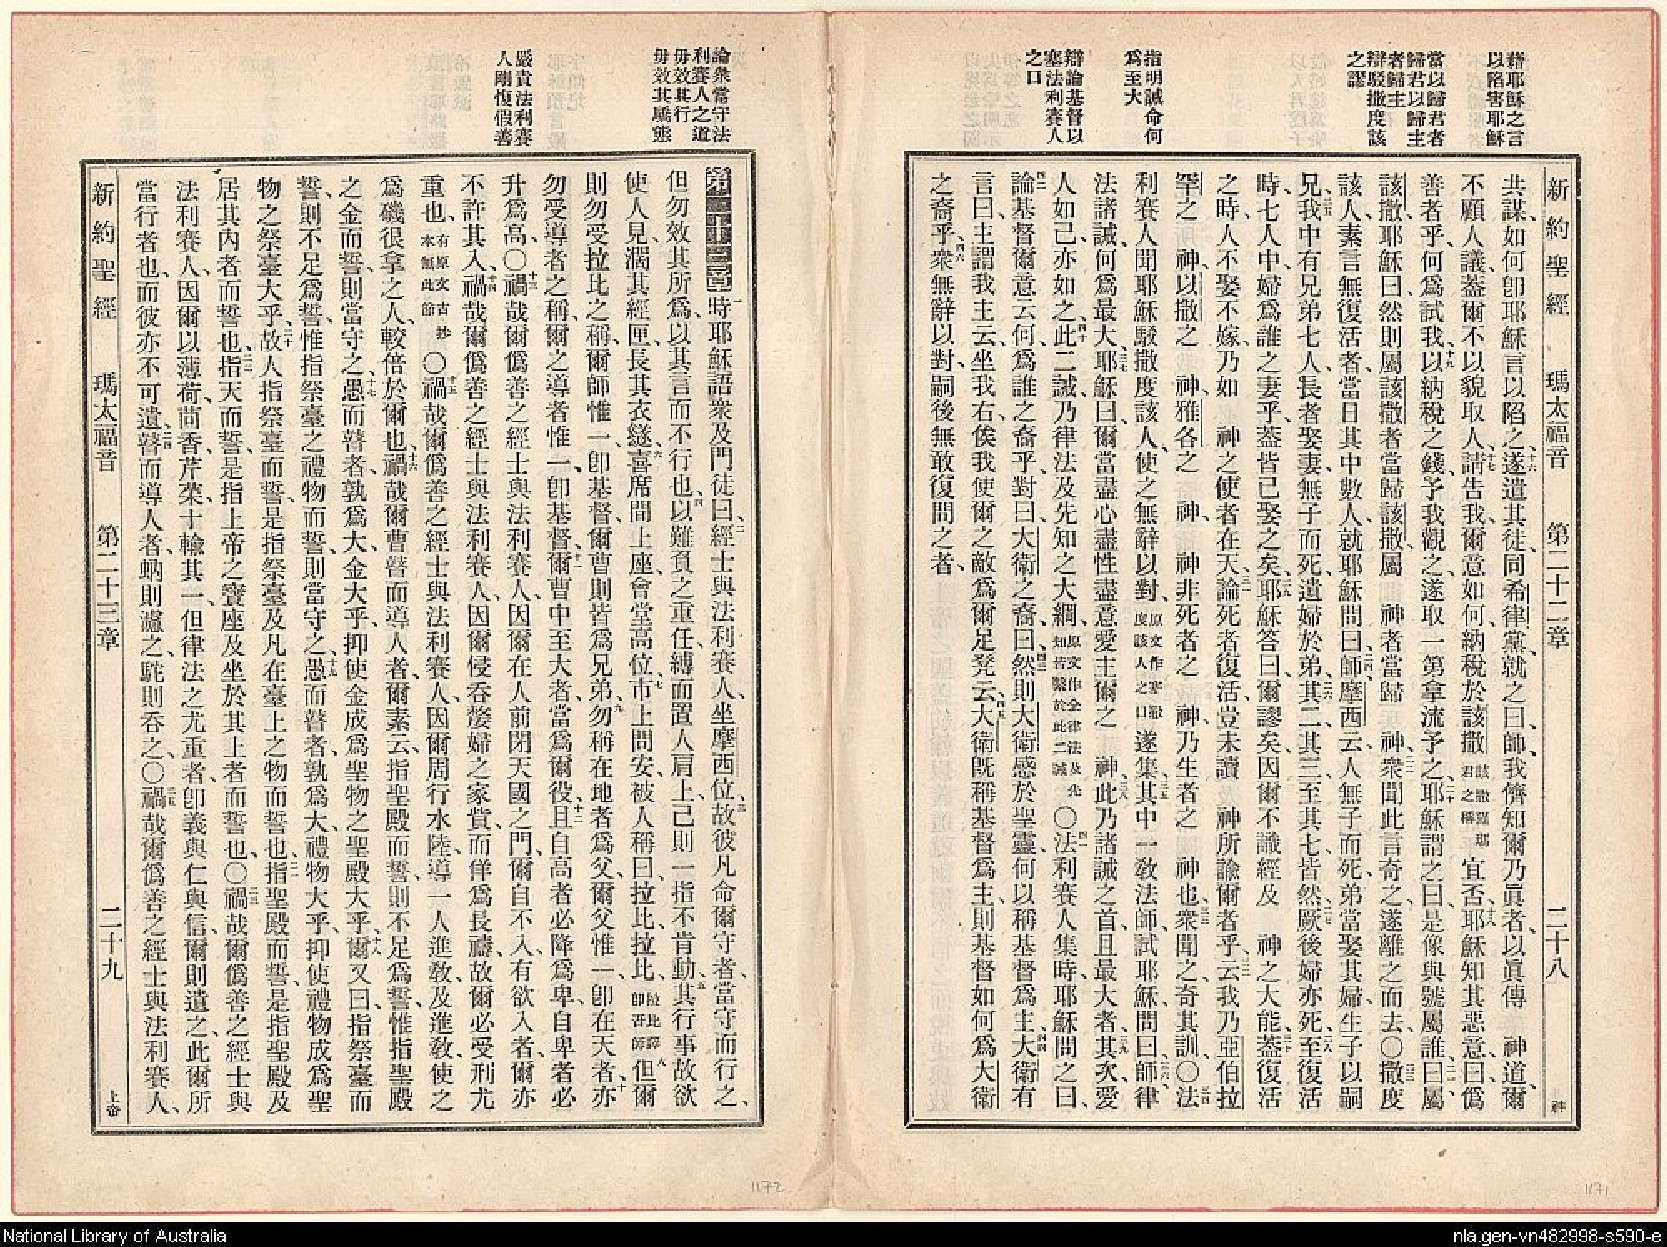 新約聖經 瑪太福音 第二十二章 二十八 神
辯耶穌之言
以陷害耶穌
當以歸君者
歸君以歸主
者歸主
辯駁撒度該
之謬
指明誡命何
爲至大
辯論基督以
塞法利賽人
之口
共謀、如何卽耶穌言以陷之、十六遂遣其徒、同希律黨、就之曰、師、我儕知爾乃眞者、以眞傳 神道、爾
不顧人議、蓋爾不以貌取人、十七請告我、爾意如何、納稅於該撒該撒羅瑪君之稱宜否、十八耶穌知其惡意、曰、僞
善者乎、何爲試我、十九以納稅之錢、予我觀之、遂取一第拿流予之、二十耶穌謂之曰、是像與號屬誰、二一曰、屬
該撒、耶穌曰、然則屬該撒者當歸該撒、屬 神者當歸 神、二二衆聞此言奇之、遂離之而去、〇二三撒度
該人、素言無復活者、當日其中數人、就耶穌問曰、二四師、摩西云、人無子而死、弟當娶其婦、生子以嗣
兄、二五我中有兄弟七人、長者娶妻、無子而死、遺婦於弟、二六其二其三、至其七皆然、二七厥後婦亦死、二八至復活
時、七人中婦爲誰之妻乎、蓋皆已娶之矣、二九耶穌答曰、爾謬矣、因爾不識經、及 神之大能、三十蓋復活
之時、人不娶不嫁、乃如 神之使者在天、三一論死者復活、豈未讀 神所諭爾者乎、三二云、我乃亞伯拉
罕之 神、以撒之 神、雅各之 神、 神非死者之 神、乃生者之 神也、三三衆聞之、奇其訓、〇三四法
利賽人聞耶穌駁撒度該人、使之無辭以對、原文作塞撒度該人之口遂集、三五其中一敎法師、試耶穌、問曰、三六師、律
法諸誡、何爲最大、三七耶穌曰、爾當盡心盡性盡意、愛主爾之 神、三八此乃諸誡之首、且最大者、三九其次、愛
人如己、亦如之、四十此二誡、乃律法及先知之大綱、原文作全律法及先知皆繫於此二誡〇四一法利賽人集時、耶穌問之曰、
四二論基督爾意云何、爲誰之裔乎、對曰、大衛之裔、四三曰、然則大衛感於聖靈、何以稱基督爲主、四四大衛有
言曰、主謂我主云、坐我右、俟我使爾之敵、爲爾足凳云、四五大衛旣稱基督爲主、則基督如何爲大衛
之裔乎、四六衆無辭以對、嗣後無敢復問之者、
論衆當守法
利賽人之道
毋效其行
毋效其驕態
嚴責法利賽
人剛愎假善
第二十三章 一時耶穌語衆及門徒曰、二經士與法利賽人、坐摩西位、三故彼凡命爾守者、當守而行之、
但勿效其所爲、以其言而不行也、四以難負之重任、縛而置人肩上、己則一指不肯動、五其行事故欲
使人見、濶其經匣、長其衣繸、六喜席間上座、會堂高位、七市上問安、被人稱曰拉比拉比、拉比譯卽吾師八但爾
則勿受拉比之稱、爾師惟一、卽基督、爾曹則皆爲兄弟、九勿稱在地者爲父、爾父惟一、卽在天者、十亦
勿受導者之稱、爾之導者惟一、卽基督、十一爾曹中至大者、當爲爾役、十二且自高者必降爲卑、自卑者必
升爲高、〇十三禍哉爾僞善之經士與法利賽人、因爾在人前閉天國之門、爾自不入、有欲入者、爾亦
不許其入、十四禍哉爾僞善之經士與法利賽人、因爾侵吞嫠婦之家貲、而佯爲長禱、故爾必受刑尤
重也、有原文古抄本無此節〇十五禍哉爾僞善之經士與法利賽人、因爾周行水陸、導一人進敎、及進敎、使之
爲磯很拿之人、較倍於爾也、十六禍哉爾曹瞽而導人者、爾素云、指聖殿而誓、則不足爲誓、惟指聖殿
之金而誓、則當守之、十七愚而瞽者、孰爲大、金大乎、抑使金成爲聖物之聖殿大乎、十八爾又曰、指祭臺而
誓、則不足爲誓、惟指祭臺之禮物而誓、則當守之、十九愚而瞽者、孰爲大、禮物大乎、抑使禮物成爲聖
物之祭臺大乎、二十故人指祭臺而誓、是指祭臺及凡在臺上之物而誓也、二一指聖殿而誓、是指聖殿及
居其內者而誓也、二二指天而誓、是指上帝之寶座、及坐於其上者而誓也、〇二三禍哉爾僞善之經士與
法利賽人、因爾以薄荷、茴香、芹菜、十輸其一、但律法之尤重者、卽義與仁與信、爾則遺之、此爾所
當行者也、而彼亦不可遺、二四瞽而導人者、蚋則濾之、駝則吞之、〇二五禍哉爾僞善之經士與法利賽人、
新約聖經 瑪太福音 第二十三章 二十九 上帝
1172
1171
National Library of Australia
nla.gen-vn482998-s590-e